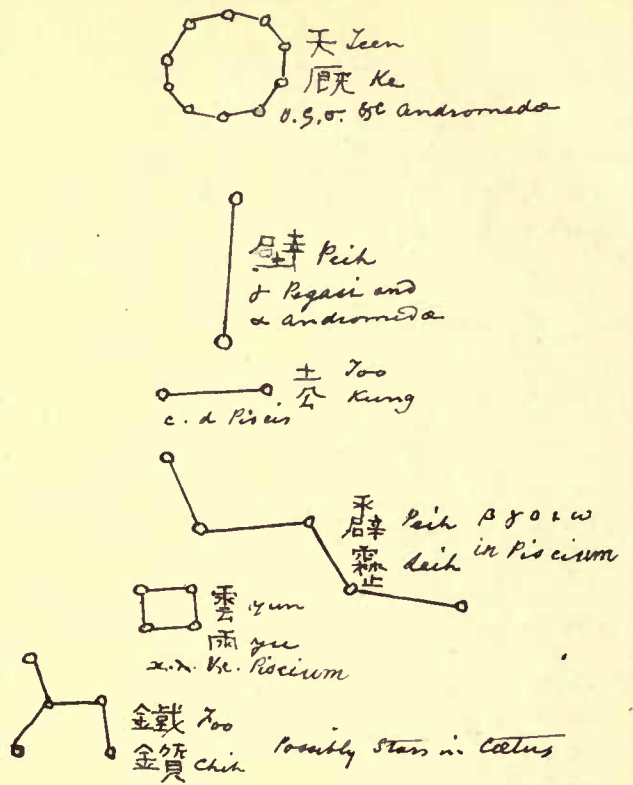 天 Teen
厩 Ke
υ. ς. σ. &c Andromedæ
壁 Peih
γ Pegasi and
α Andromedæ
土 Too
公 Kung
c. d Piscis
Peih β γ θ ι ω
Leih in Piscium
雲 yun
雨 yu
κ. λ. &c. Piscium
鐵 Foo
鑕 Chih Possibly Stars in Cætus